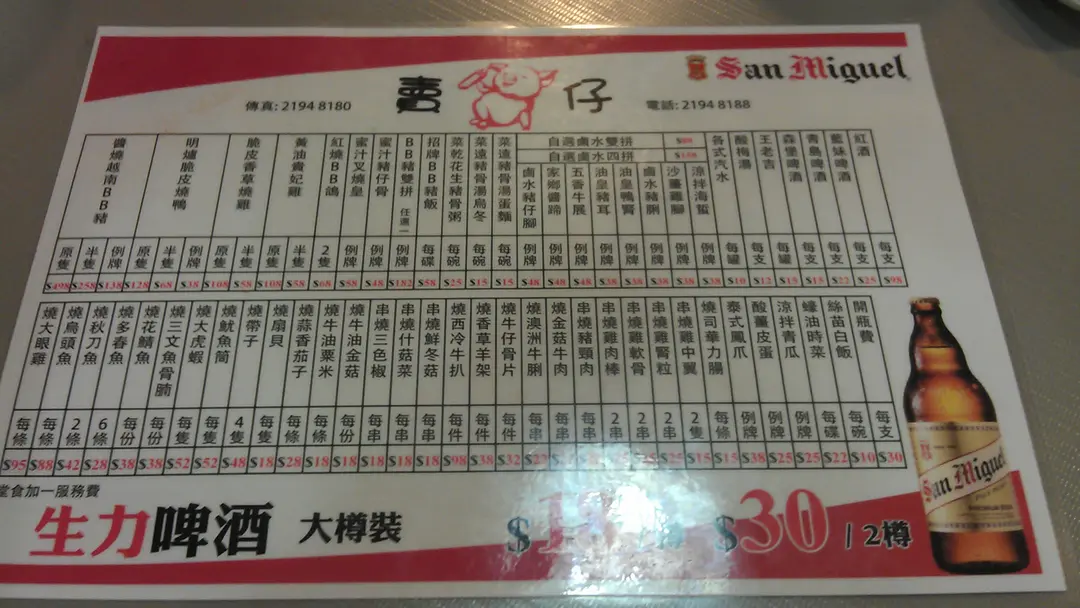 San Miguel
賣 仔
傳真: 2194 8180
電話: 2194 8188
紅酒 每支 $98
藍妹啤酒 每支 $25
青島啤酒 每支 $22
森堡啤酒 每支 $15
王老吉 每罐 $15
酸梅湯 每支 $12
各式汽水 每罐 $10
自選鹵水雙拼
自選鹵水四拼
涼拌海蜇 例牌 $38
沙薑雞腳 例牌 $38
鹵水豬脷 例牌 $38
油皇鴨腎 例牌 $38
油皇豬耳 例牌 $38
五香牛展 例牌 $48
家鄉醬蹄 例牌
鹵水豬仔腳 例牌 $48
菜遠豬骨湯蛋麵 每碗 $15
菜遠豬骨湯烏冬 每碗 $15
菜乾花生豬骨粥 每碗 $25
招牌BB豬飯 每碟 $58
BB豬雙拼 任選一 例牌 $182
蜜汁豬仔骨 例牌 $48
蜜汁叉燒皇 例牌 $58
紅燒BB鴿 2隻 $68
黃油貴妃雞 半隻 $58 原隻 $108
脆皮香草燒雞 半隻 $58 原隻 $108
明爐脆皮燒鴨 例牌 $38 半隻 $68 原隻 $128
醬燒越南BB豬 例牌 $138 半隻 $258 原隻 $498
開瓶費 每支 $30
絲苗白飯 每碗 $10
蠔油時菜 每碟 $22
涼拌青瓜 例牌 $25
酸薑皮蛋 例牌 $25
泰式鳳爪 例牌 $38
燒司華力腸 每條 $15
串燒雞中翼 2隻 $15
串燒雞腎粒 2串 $25
串燒雞軟骨 2串 $25
串燒雞肉棒 2串
串燒豬頸肉 每串
燒金菇牛肉 每串
燒澳洲牛脷 每串
燒牛仔骨片 每件 $32
燒香草羊架 每件 $38
燒西冷牛扒 每件 $98
串燒鮮冬菇 每串 $18
串燒什菇菜 每串 $18
串燒三色椒 每串 $18
燒牛油金菇 每份 $18
燒牛油粟米 每條 $18
燒蒜香茄子 每條 $28
燒扇貝 每隻 $18
燒帶子 4隻 $48
燒魷魚筒 每隻 $52
燒大虎蝦 每隻 $52
燒三文魚骨腩 每份 $38
燒花鯖魚 每份 $38
燒多春魚 6條 $28
燒秋刀魚 2條 $42
燒烏頭魚 每條 $88
燒大眼雞 每條 $95
堂食加一服務費
生力啤酒 大樽裝
$30 / 2樽
San Miguel